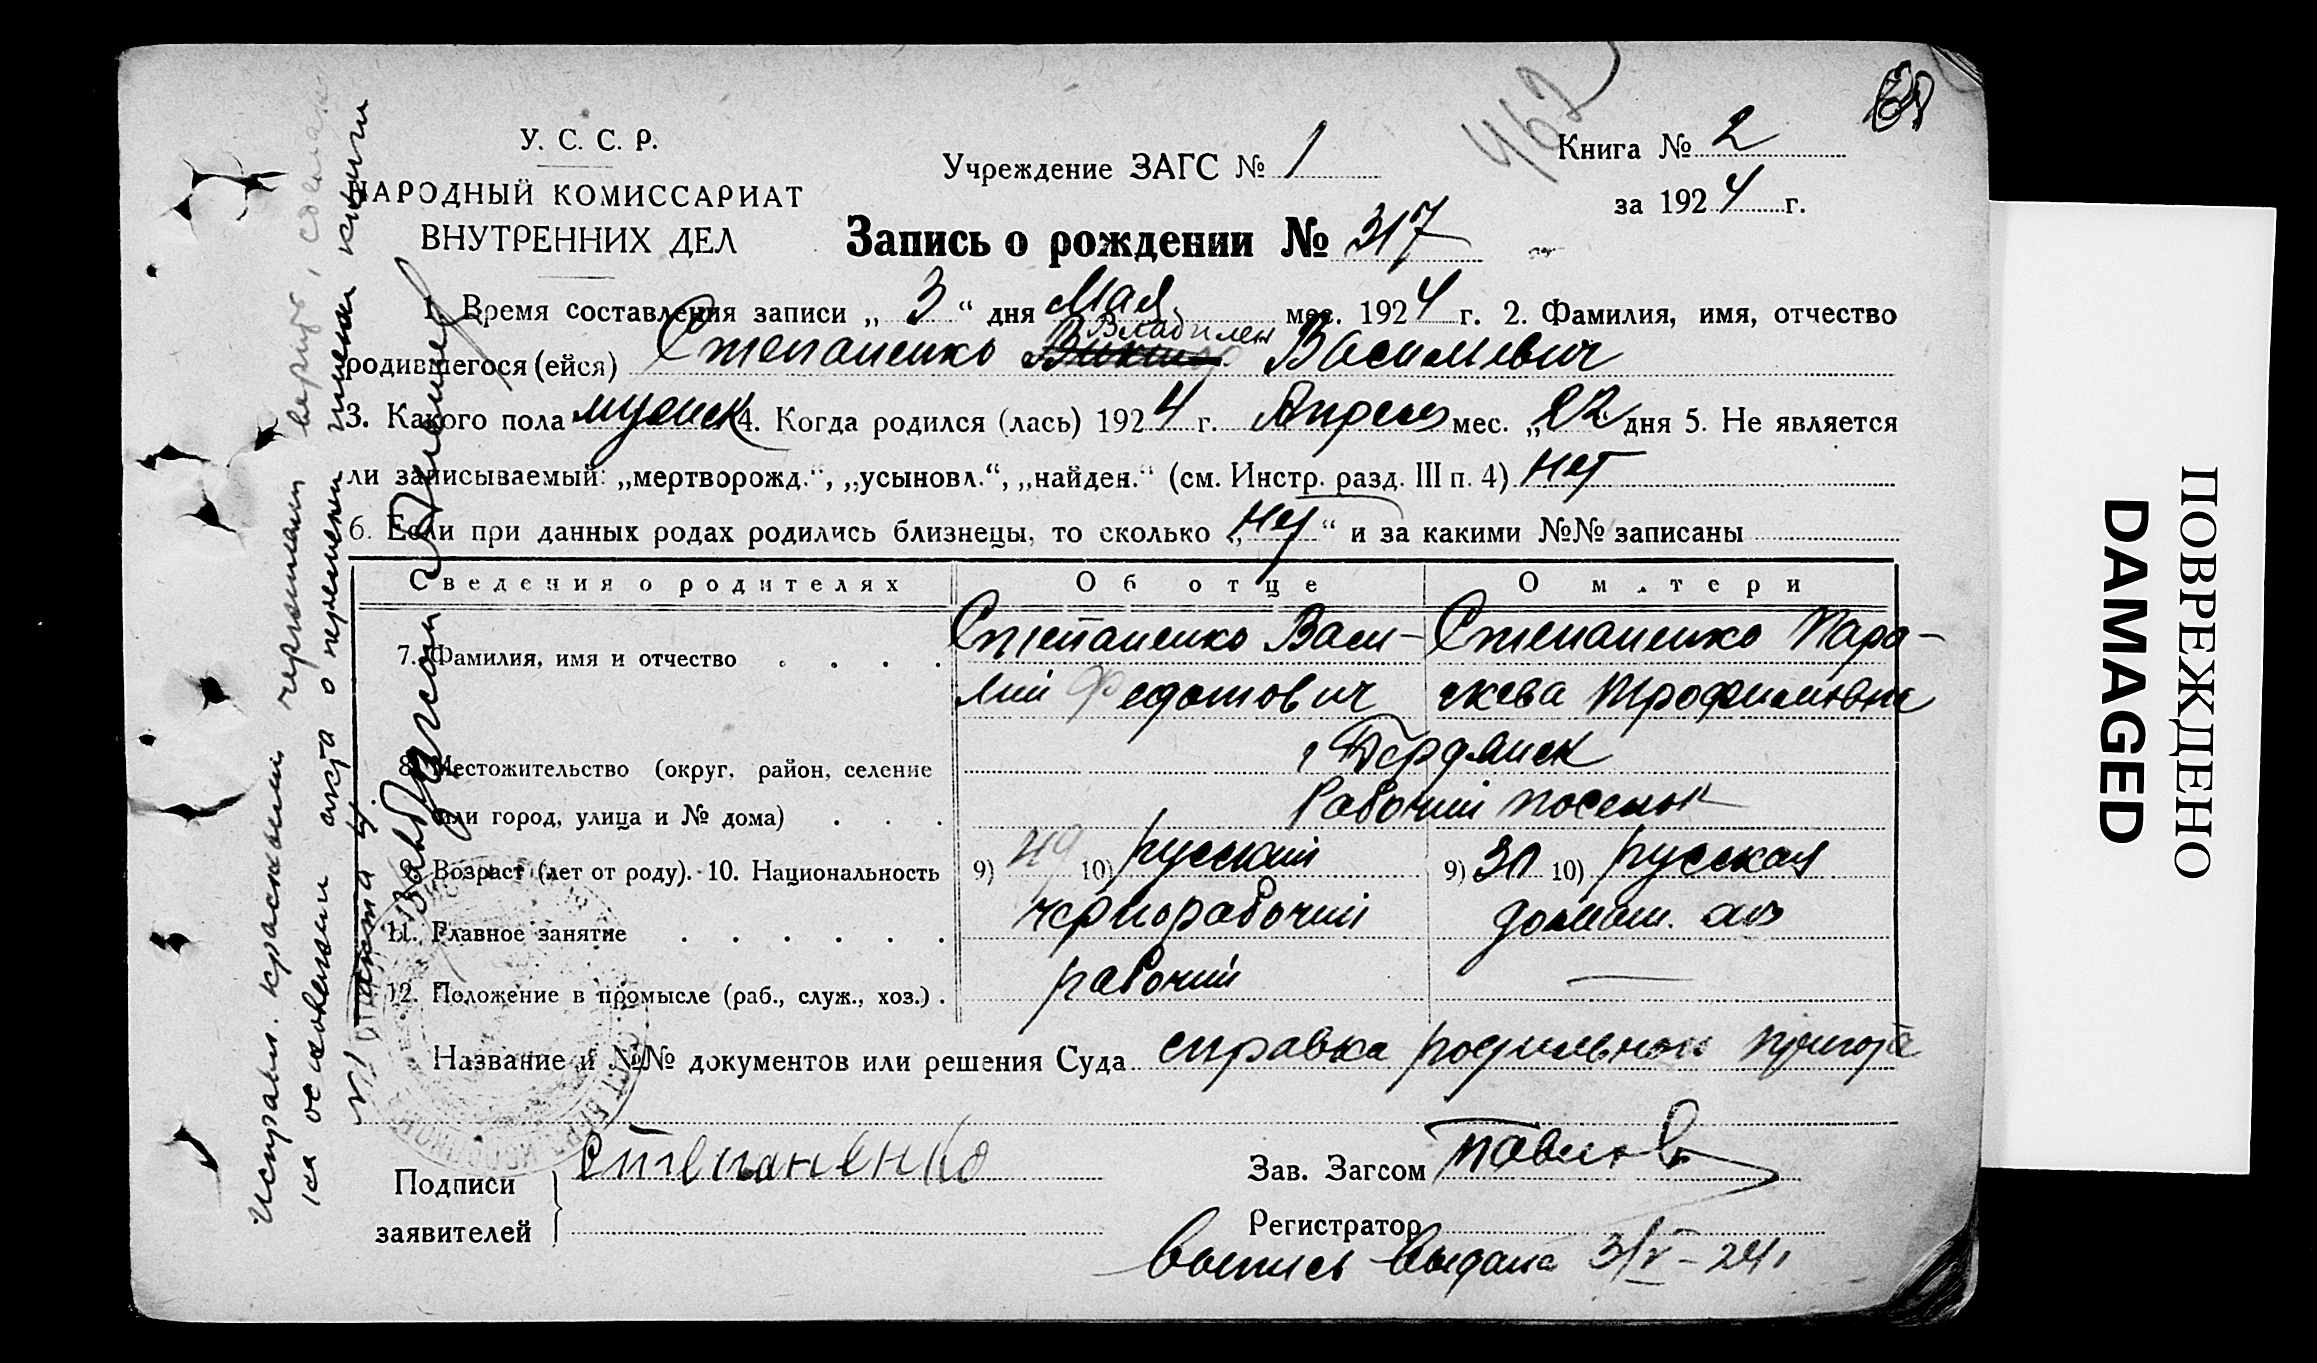 462
У. С. С. Р.
НАРОДНЫЙ КОМИССАРИАТ
ВНУТРЕННИХ ДЕЛ
Учреждение ЗАГС № 1
Книга № 2
за 1924 г.
Запись о рождении № 317
1. Время составления записи „ 3 “ дня Мая мес. 1924 г. 2. Фамилия, имя, отчество
Владилен
родившегося (ейся) Степаненко Виктор Васильевич
3. Какого пола мужск 4. Когда родился (лась) 1924 г. Апрель мес. „22 дня 5. Не является
ли записываемый: „мертворожд.“, „усыновл.“, „найден.“ (см. Инстр. разд. III п. 4) нет
6. Если при данных родах родились близнецы, то сколько „нет“ и за какими №№ записаны
Сведения о родителях Об отце О м.тери
7. Фамилия, имя и отчество . . . . Степаненко Васи- Степаненко Пара-
лий Федотович скева Трофимовна
8. Местожительство (округ, район, селение г Бердянск
или город, улица и № дома) . . . Рабочий поселок
9. Возраст (лет от роду). 10. Национальность 9) 49 10) русский 9) 30 10) русская
11. Главное занятие . . . . . . чернорабочий домаш. хоз
12. Положение в промысле (раб., служ., хоз.) . рабочий —
Название и №№ документов или решения Суда справка родильного приюта
Подписи
заявителей
Степаненко
Зав. Загсом Павлов
Регистратор
Выпись выдана 3/V-24г
Исправл. красными чернилами верить,
на основании акта о перемени имени книги
№1 акта 4.
Зав Загсом
ПОВРЕЖДЕНО
DAMAGED